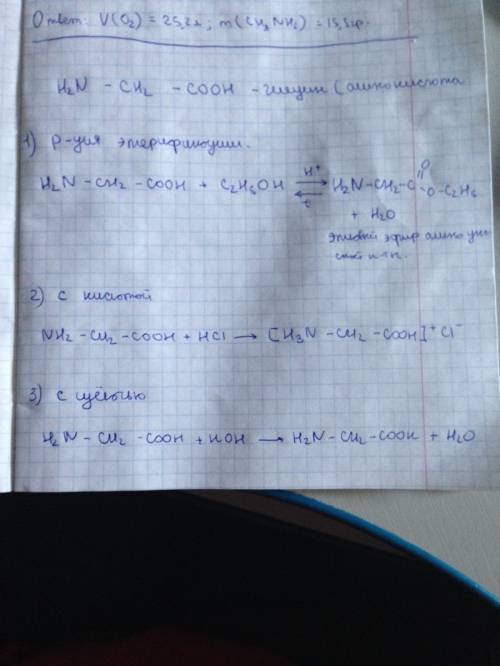 Ответ: V(O₂) = 25,2 л; m(CH₃NH₂) = 15,5 гр.
H₂N – CH₂ – COOH – глицин (аминокислота
1) р-ция этерификации.
H₂N – CH₂ – COOH + C₂H₅OH ⇄ H₂N – CH₂ – C
H⁺
t
O
O – C₂H₅
+ H₂O
этиловый эфир амино
2) с кислотой
NH₂ – CH₂ – COOH + HCl → [CH₃N – CH₂ – COOH]⁺ Cl⁻
3) с щёлочью
H₂N – CH₂ – COOH + KOH → H₂N – CH₂ – COOK + H₂O